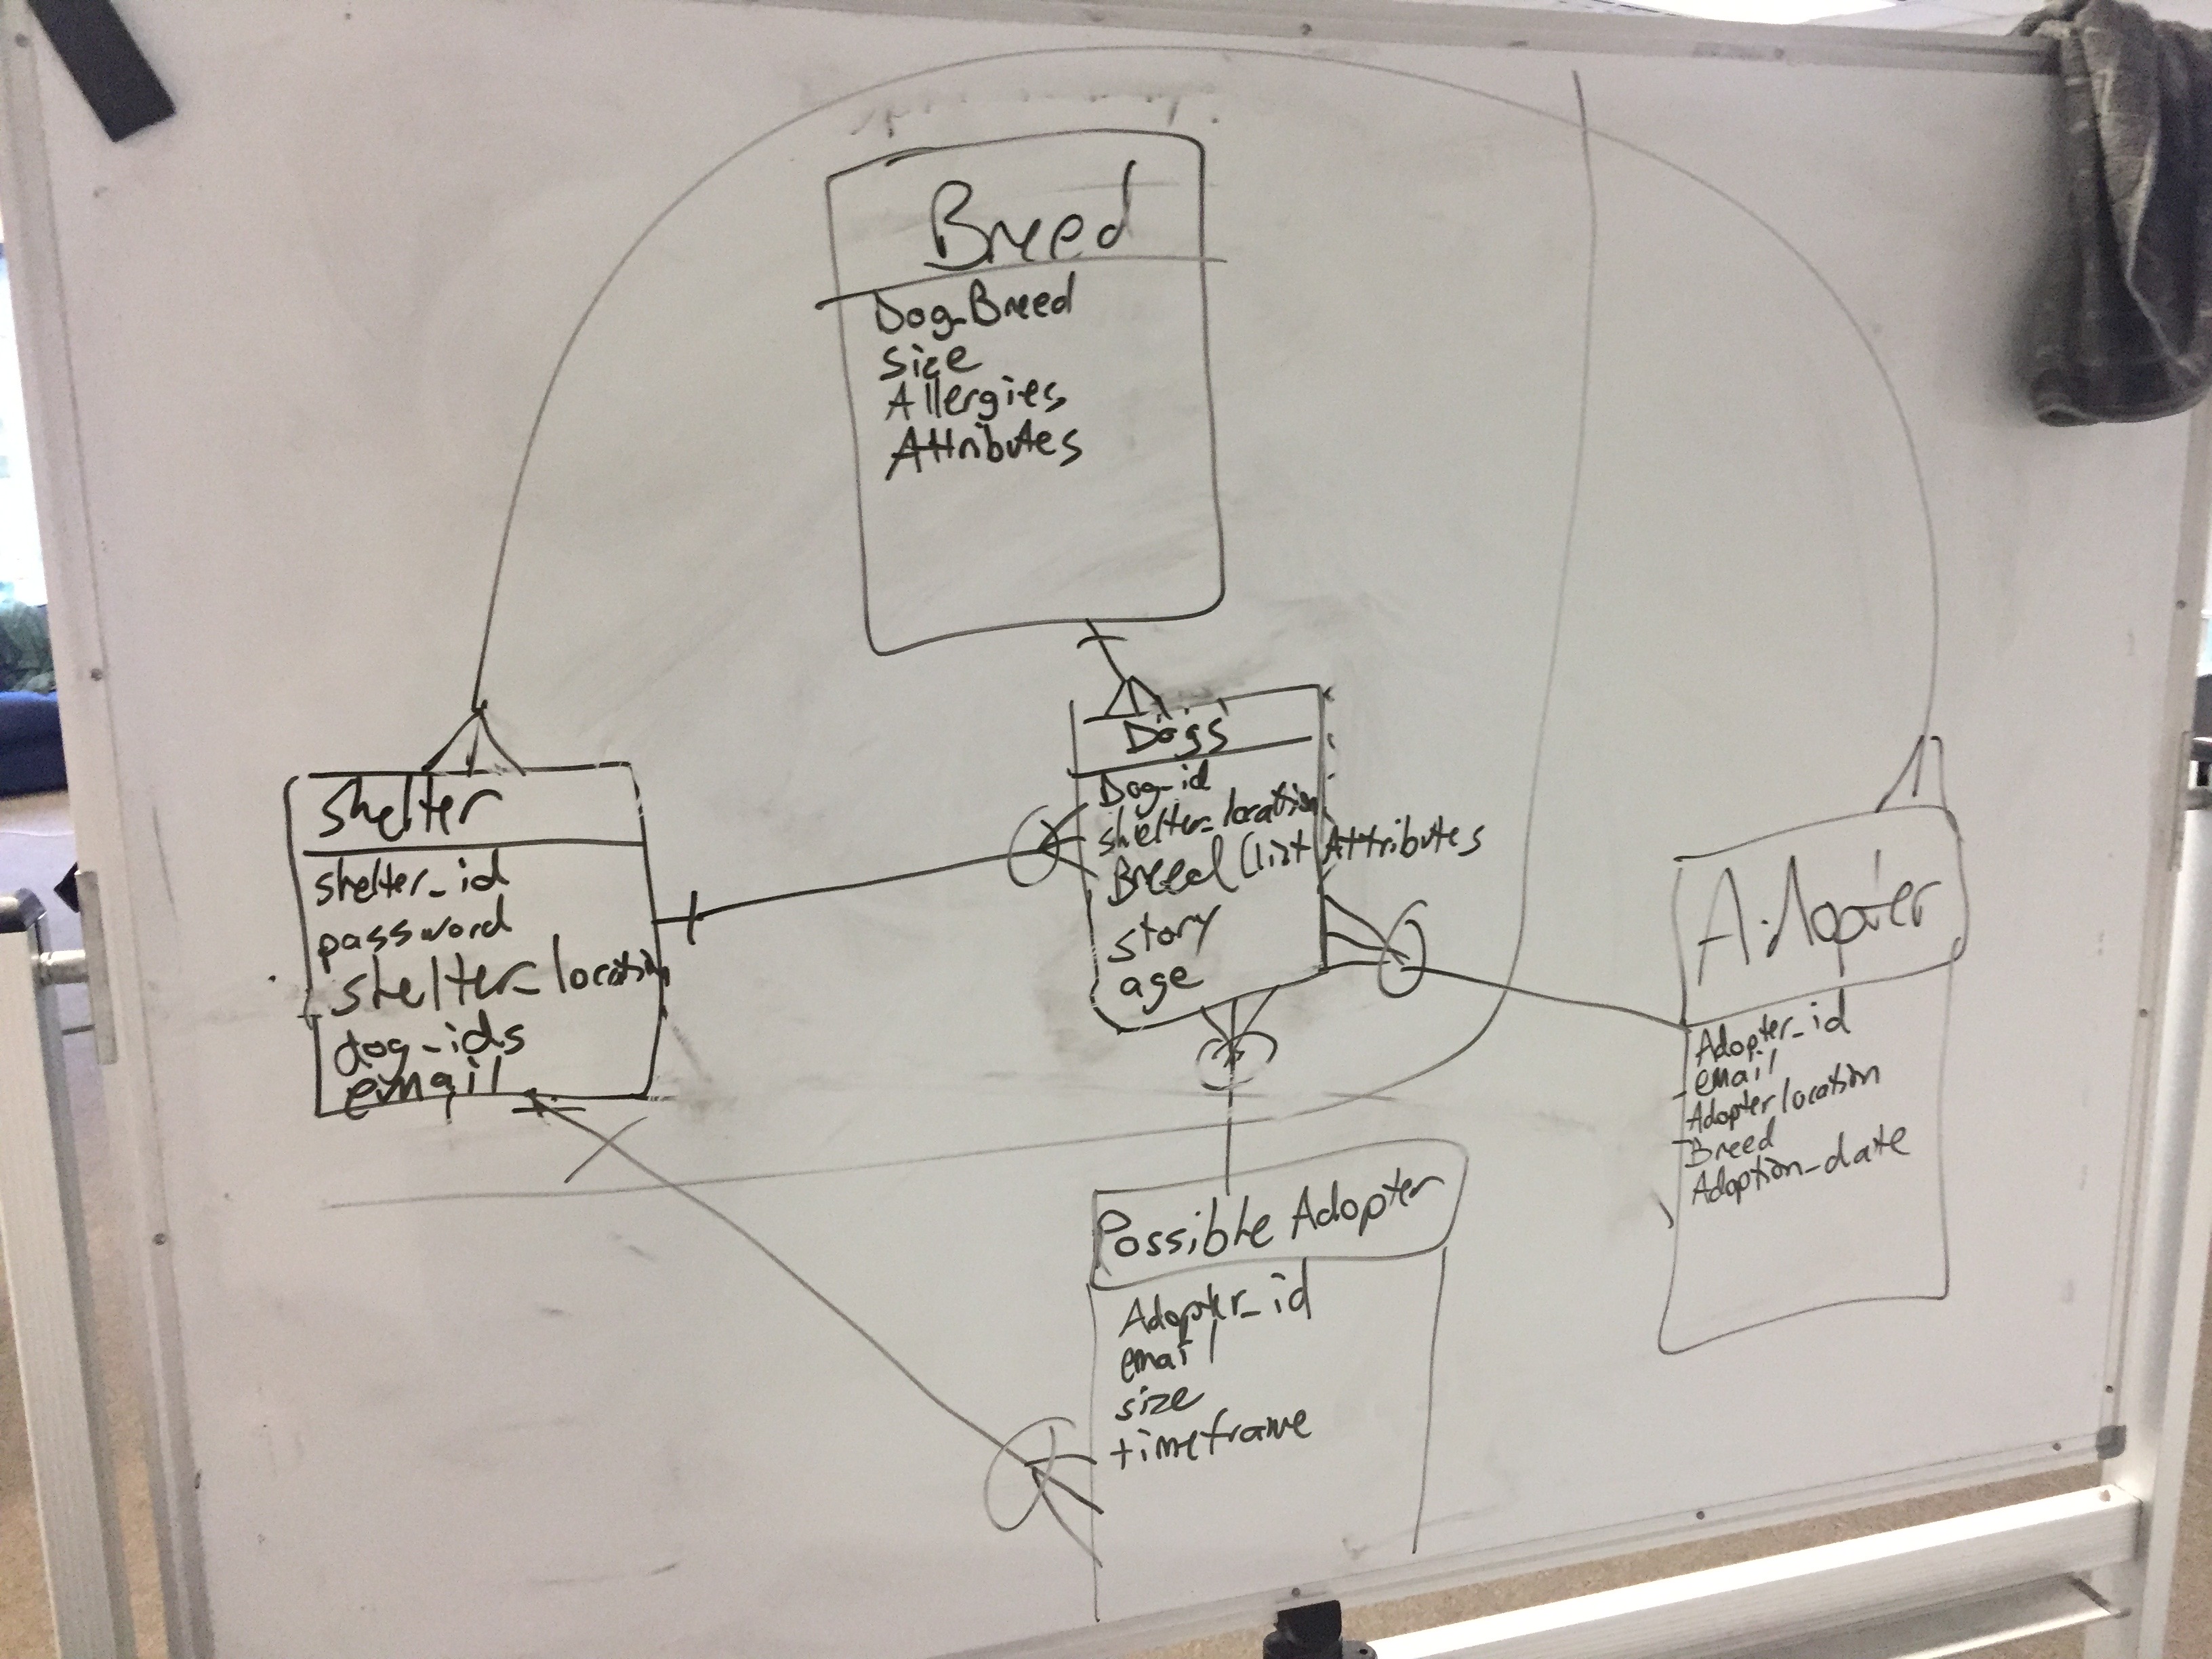 Breed
Dog_Breed
Size
Allergies
Attributes
Shelter
shelter_id
password
shelter_location
dog_ids
email
Dogs
Dog_id
shelter_location
Breed (list Attributes
story
age
Adopter
Adopter_id
email
Adopter location
Breed
Adoption_date
Possible Adopter
Adopter_id
email
size
timeframe